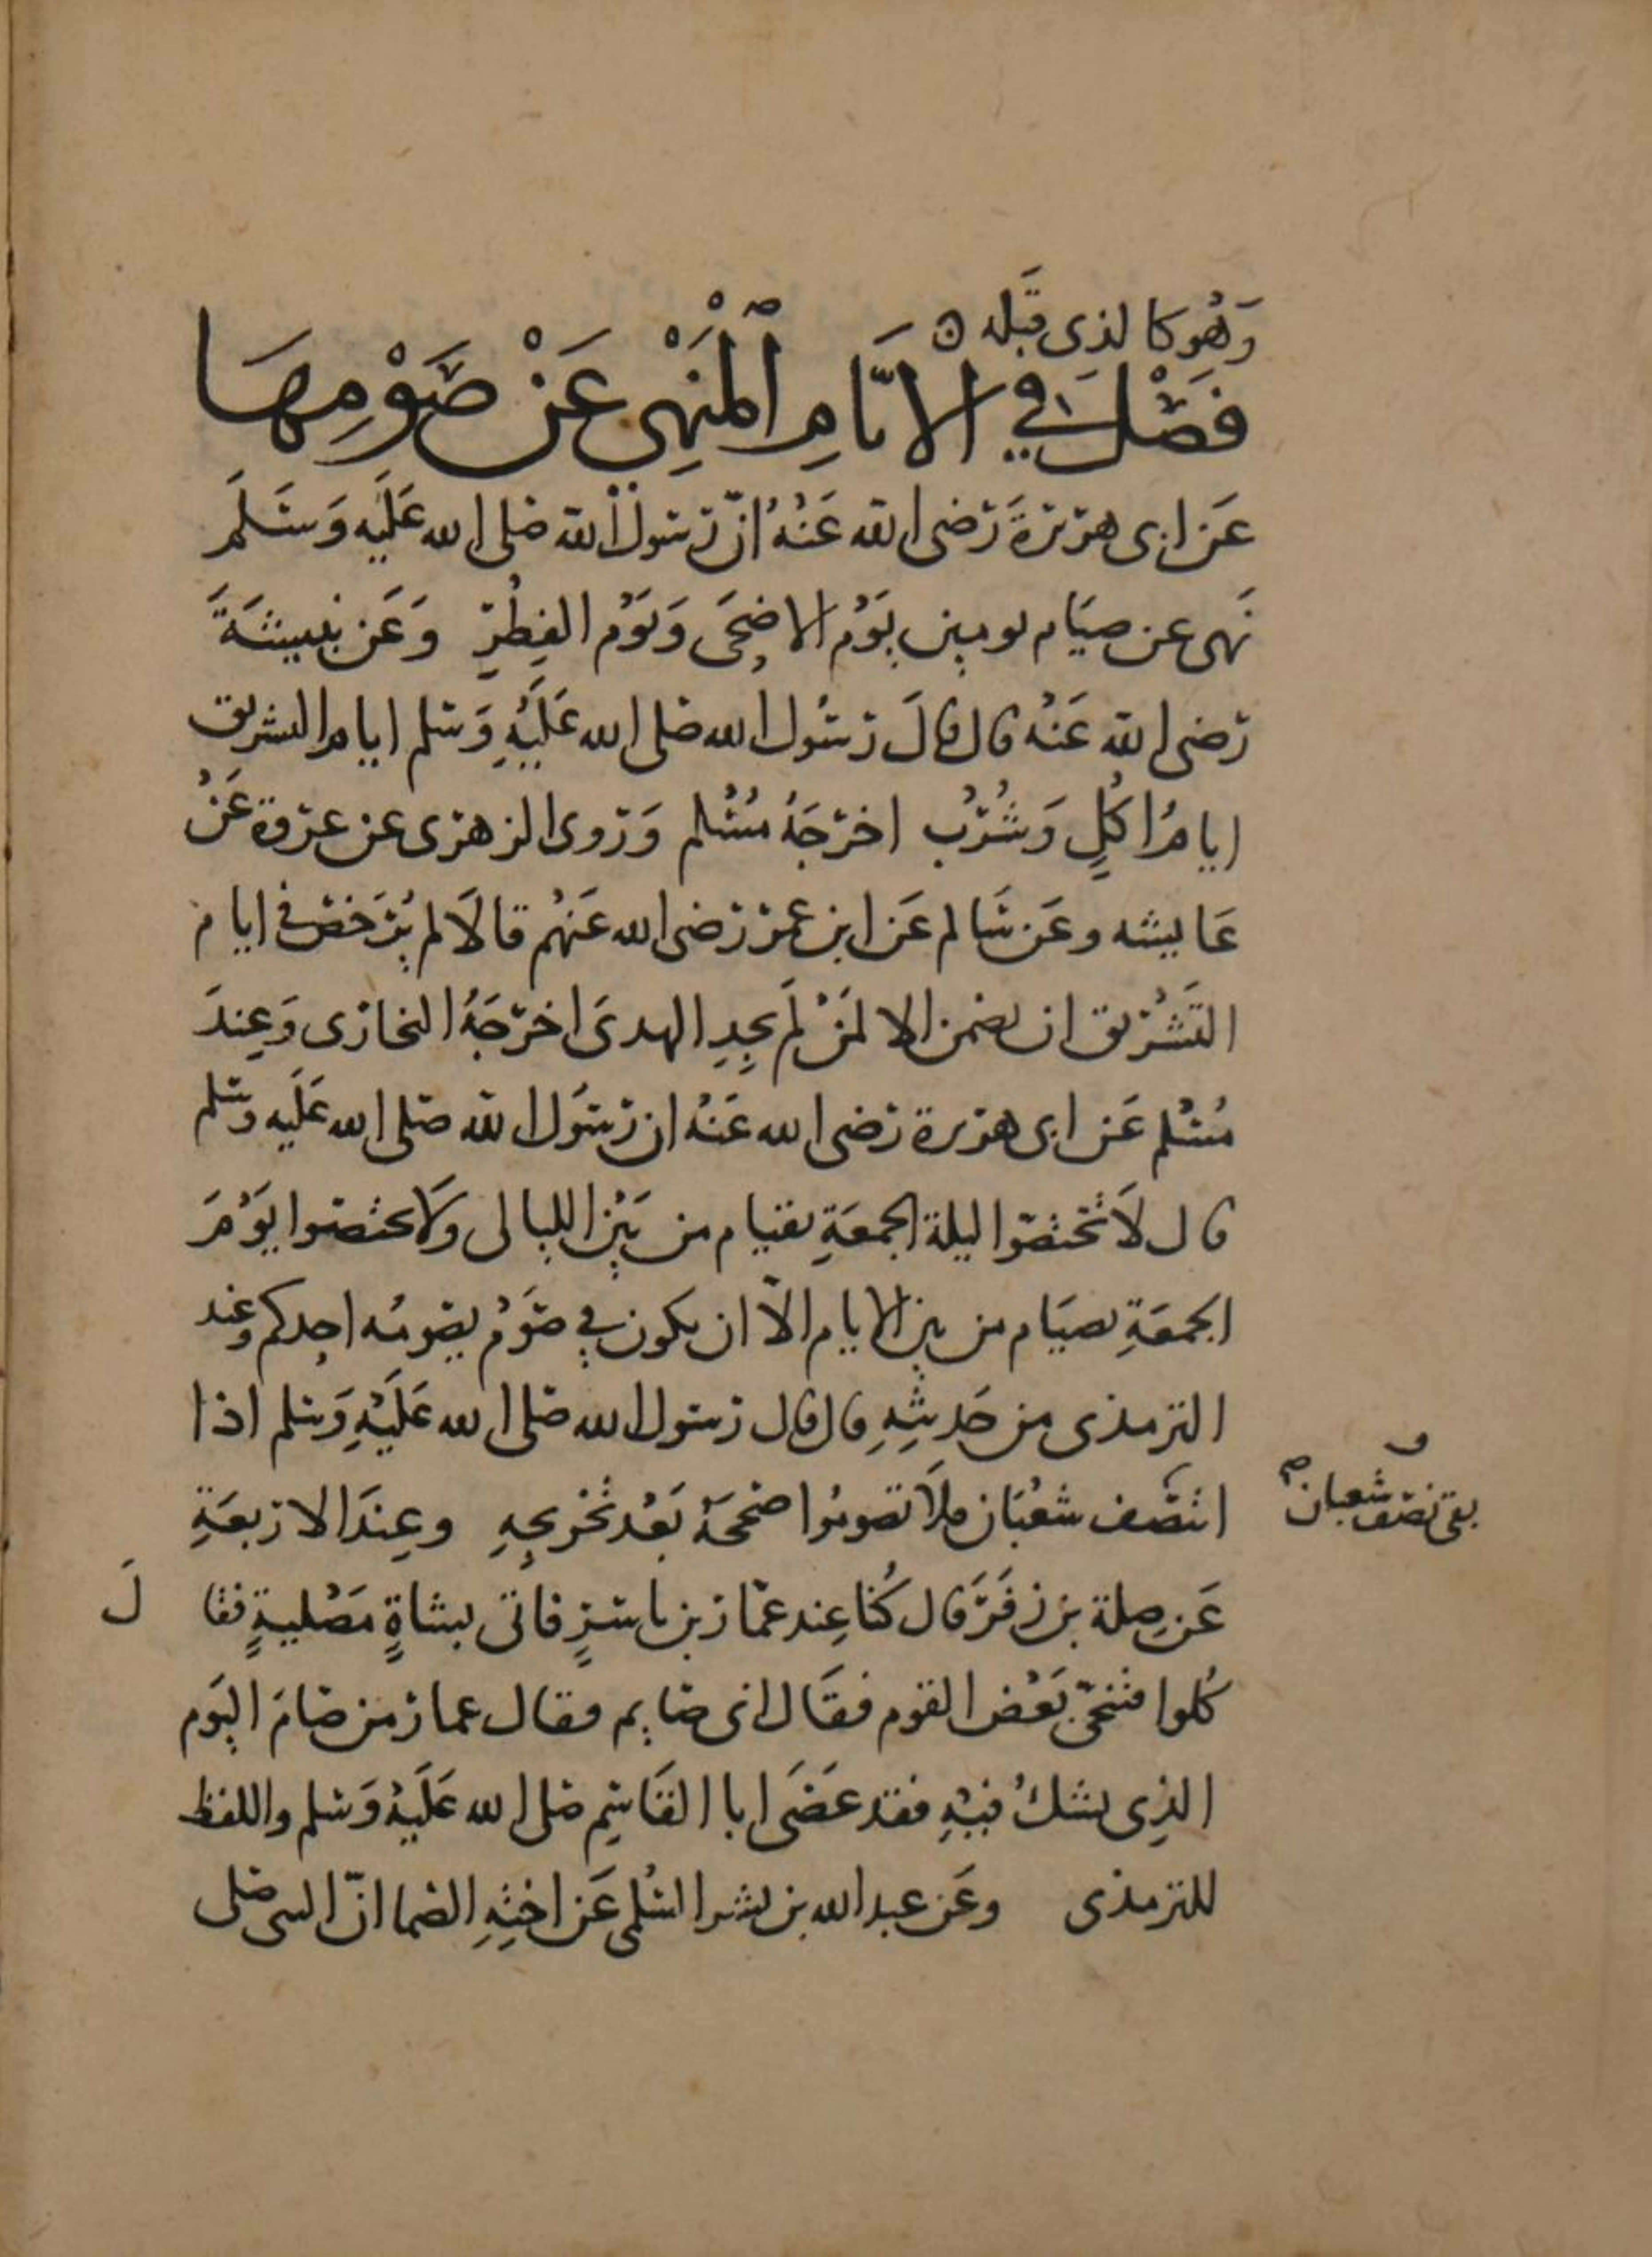 وَهُوَ كالذي قَبله
فَصْلٌ في الايَّامِ الْمَنْهِي عَنْ صَوْمِهَا
عَن ابى هريرةَ رَضى الله عَنْهُ انّ رسول الله صلى الله عَلَيْه وَسَلَّمَ
نَهى عن صيَام يومين يَوْم الاضحَى وَيَوْم الفِطْرِ وَعَن نبيشَةَ
رضى الله عَنْه قال قالَ رسُول الله صلى الله عَلَيْهِ وَسلم ايام التشريق
ايامُ اكْلٍ وَشُرْبٍ اخرَجَهُ مُسْلم وَروى الزهرى عن عروة عَنْ
عَايشه وعَن سَالم عَن ابن عمر رضى الله عَنْهُم قالَا لم يُرَخص في ايام
التَشْريق ان يصمن الا لمَنْ لَم يجِدِ الهدىَ اخرَجَهُ البخارى وَعِندَ
مُسْلم عَن ابى هريرة رضى الله عَنْهُ ان رسُول الله صلى الله عَلَيْه وسلم
قال لَا تختصّوا ليلة الجمعَةِ بقيام من بَيْن الليالى وَلا تختصوا يَوْمَ
الجمعَةِ بصيَام من بين الايام الّا ان يكون في صَوْم يصومُه احدكم وعند
الترمذى من حَديثِهِ قال قال رسول الله صلى الله عَلَيْهِ وَسلم اذا
بقى نصف شعبان صح
انتصَف شعْبَان فلَا تصومُوا صححَهُ بَعْد تخريجِهِ وعِندَ الاربعَةِ
عَن صِلة بن زفَرَ قال كُنا عِند عمّار بن ياسرٍ فاتى بشاةٍ مَصْليةٍ فقالَ
كُلوا فتنحّى بَعْض القوم فقَال انى صايم فقال عمار من صَامَ اليَوم
الذِى يشكُ فيْهِ فقد عَصَى ابا القَاسِم صلى الله عَلَيْهِ وَسلم واللفظ
للترمذى وعَن عبد الله بن بشر السُلمى عَن اختِهِ الصما انّ النبى صلى